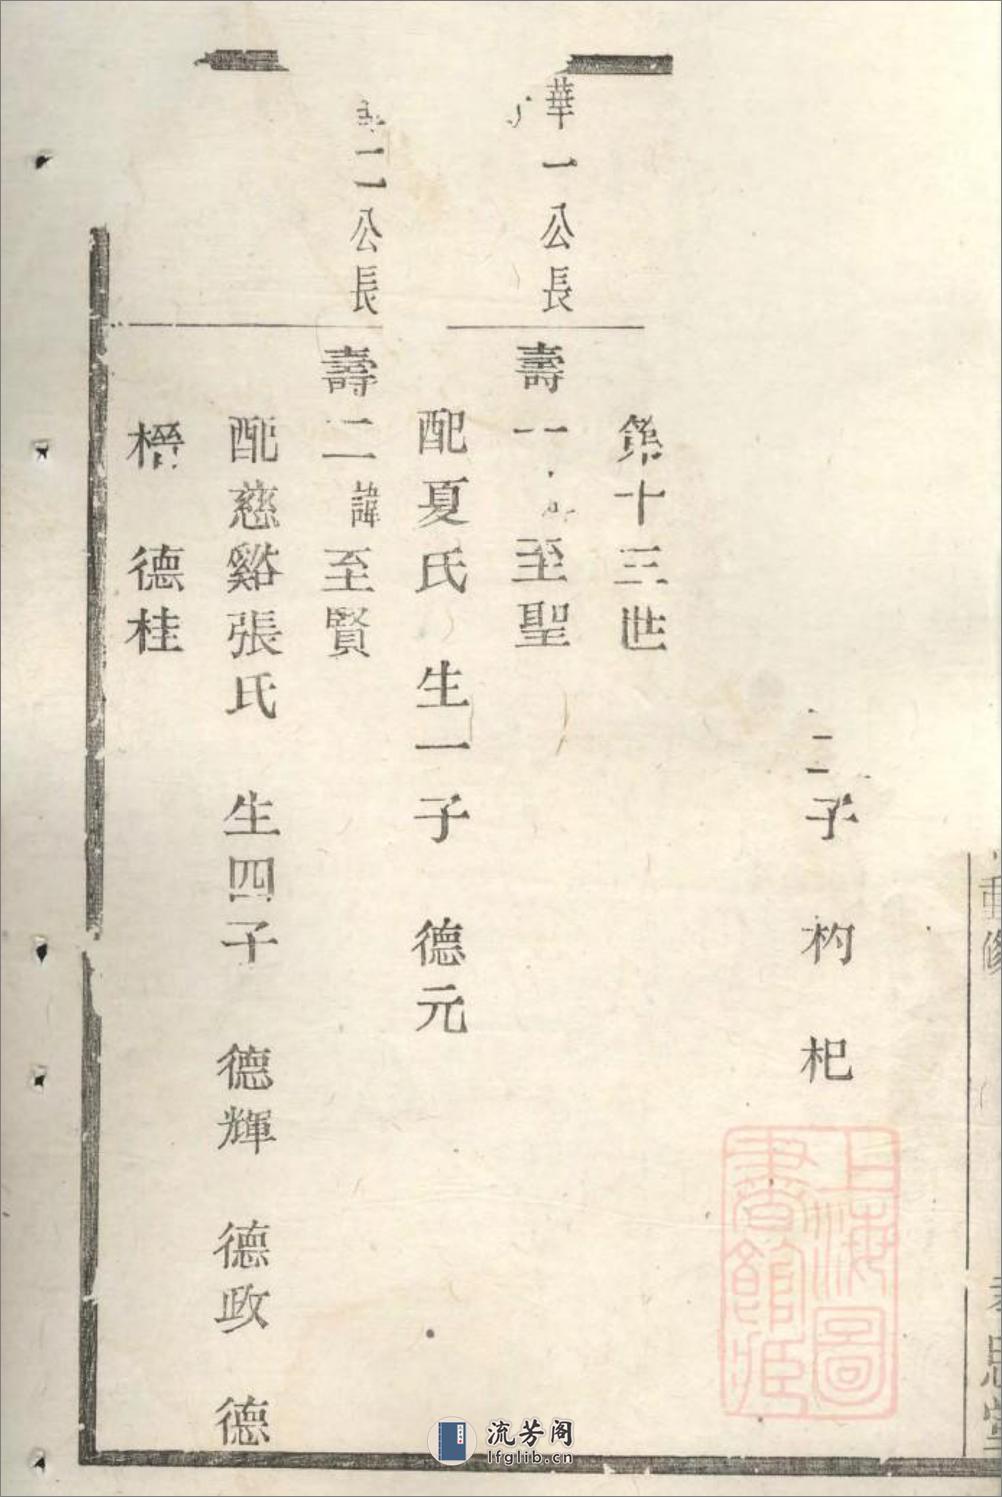 二子　杓　杞
第十三世
華一公長
壽一　至聖
配夏氏　生一子　德元
二公長
壽二諱至賢
配慈谿張氏　生四子　德輝　德政　德
榗　德桂
重修
思堂
上海圖書館藏
流芳阁
lfglib.cn